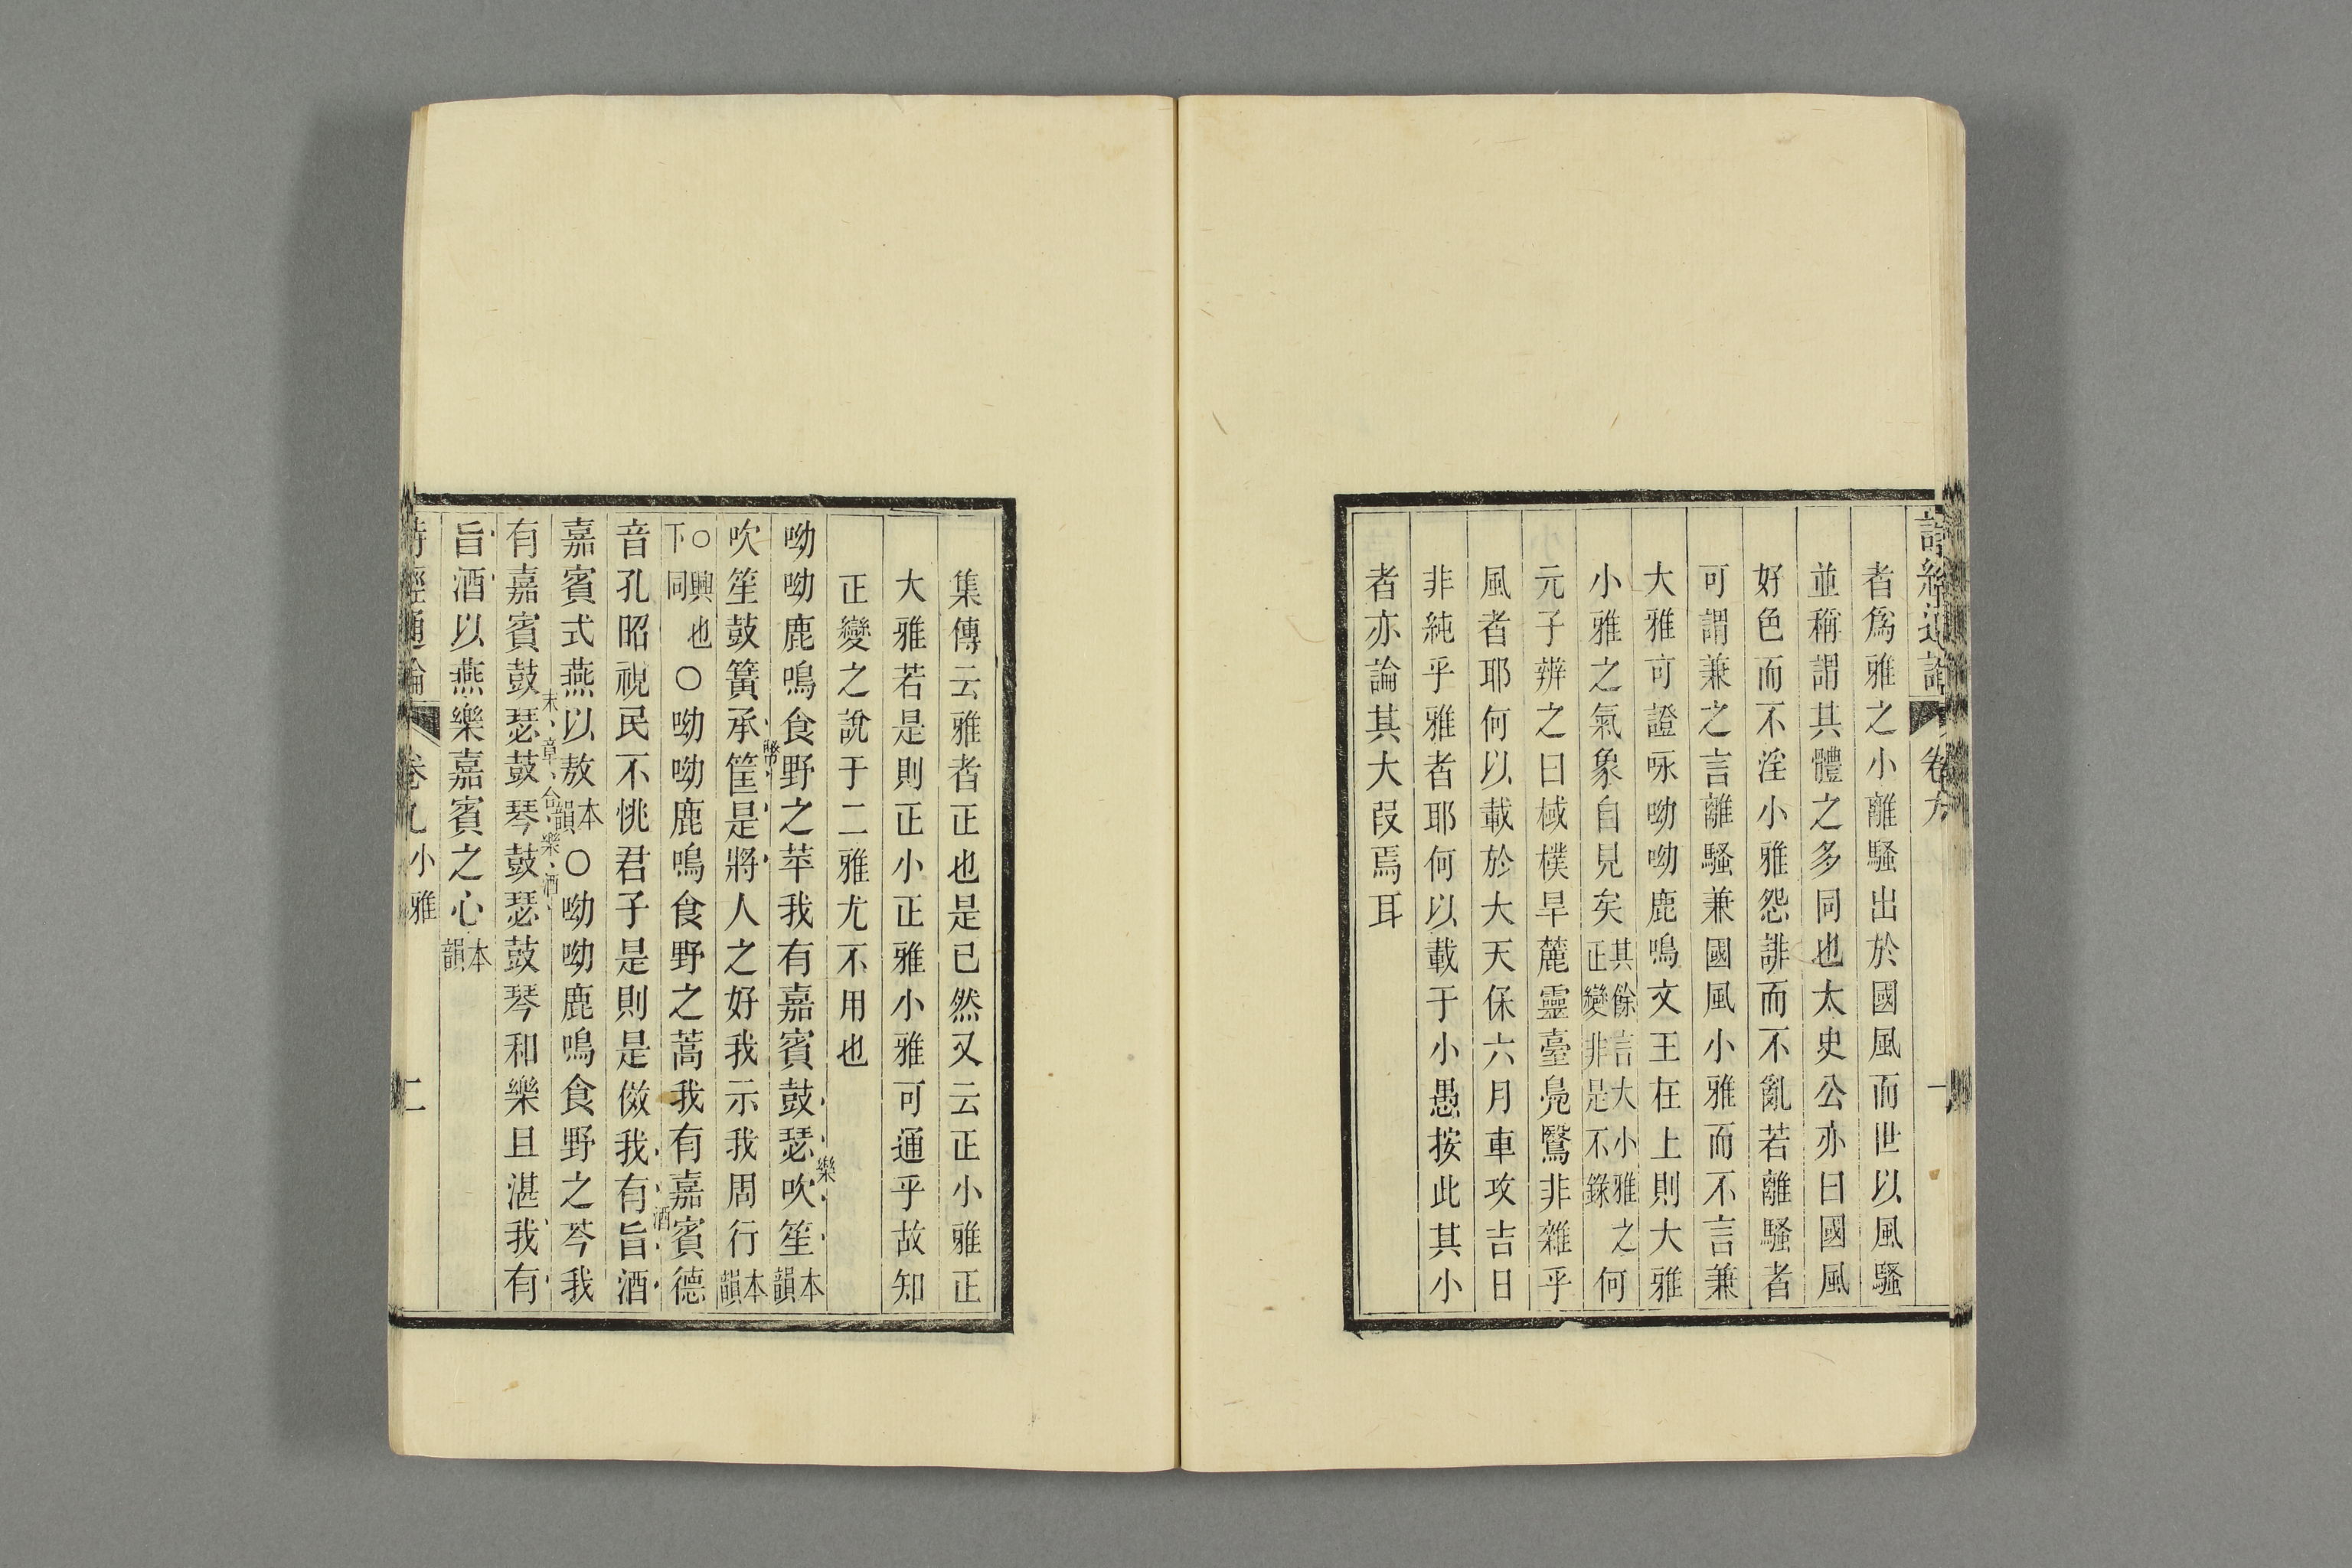 詩經通論 卷九 一
者爲雅之小離騷出於國風而世以風騷
並稱謂其體之多同也太史公亦曰國風
好色而不淫小雅怨誹而不亂若離騷者
可謂兼之言離騷兼國風小雅而不言兼
大雅可證咏呦呦鹿鳴文王在上則大雅
小雅之氣象自見矣其餘言大小雅之正變非是不錄何
元子辨之曰棫樸旱麓靈臺鳧鷖非雜乎
風者耶何以載於大天保六月車攻吉日
非純乎雅者耶何以載于小愚按此其小
者亦論其大段焉耳
集傳云雅者正也是已然又云正小雅正
大雅若是則正小正雅小雅可通乎故知
正變之說于二雅尤不用也
呦呦鹿鳴食野之苹我有嘉賓鼓瑟吹笙本韻
樂
吹笙鼓簧承筐是將人之好我示我周行本韻
幣
○興也下同○呦呦鹿鳴食野之蒿我有嘉賓德
音孔昭視民不恌君子是則是傚我有旨酒
酒
嘉賓式燕以敖本韻○呦呦鹿鳴食野之芩我
有嘉賓鼓瑟鼓琴鼓瑟鼓琴和樂且湛我有
末章合樂酒
旨酒以燕樂嘉賓之心本韻
詩經通論 卷九 小雅 二